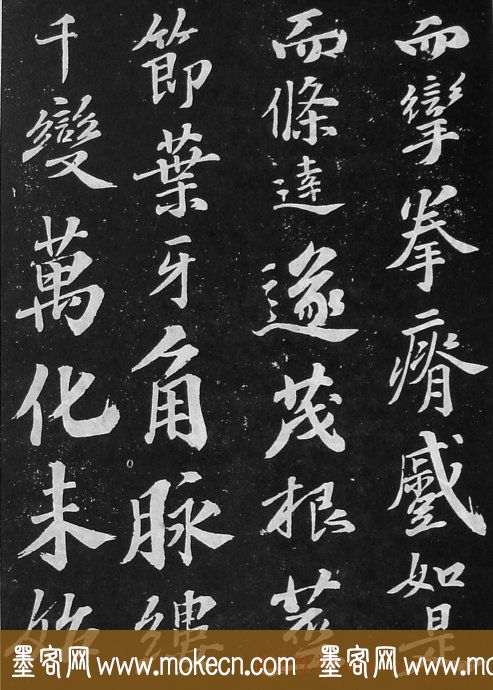 而攣拳瘠蹙如是
而條達遂茂根莖
節葉牙角脉縷
千變萬化未始
墨客网 www.mokecn.com 墨客网 www.mokecn.com